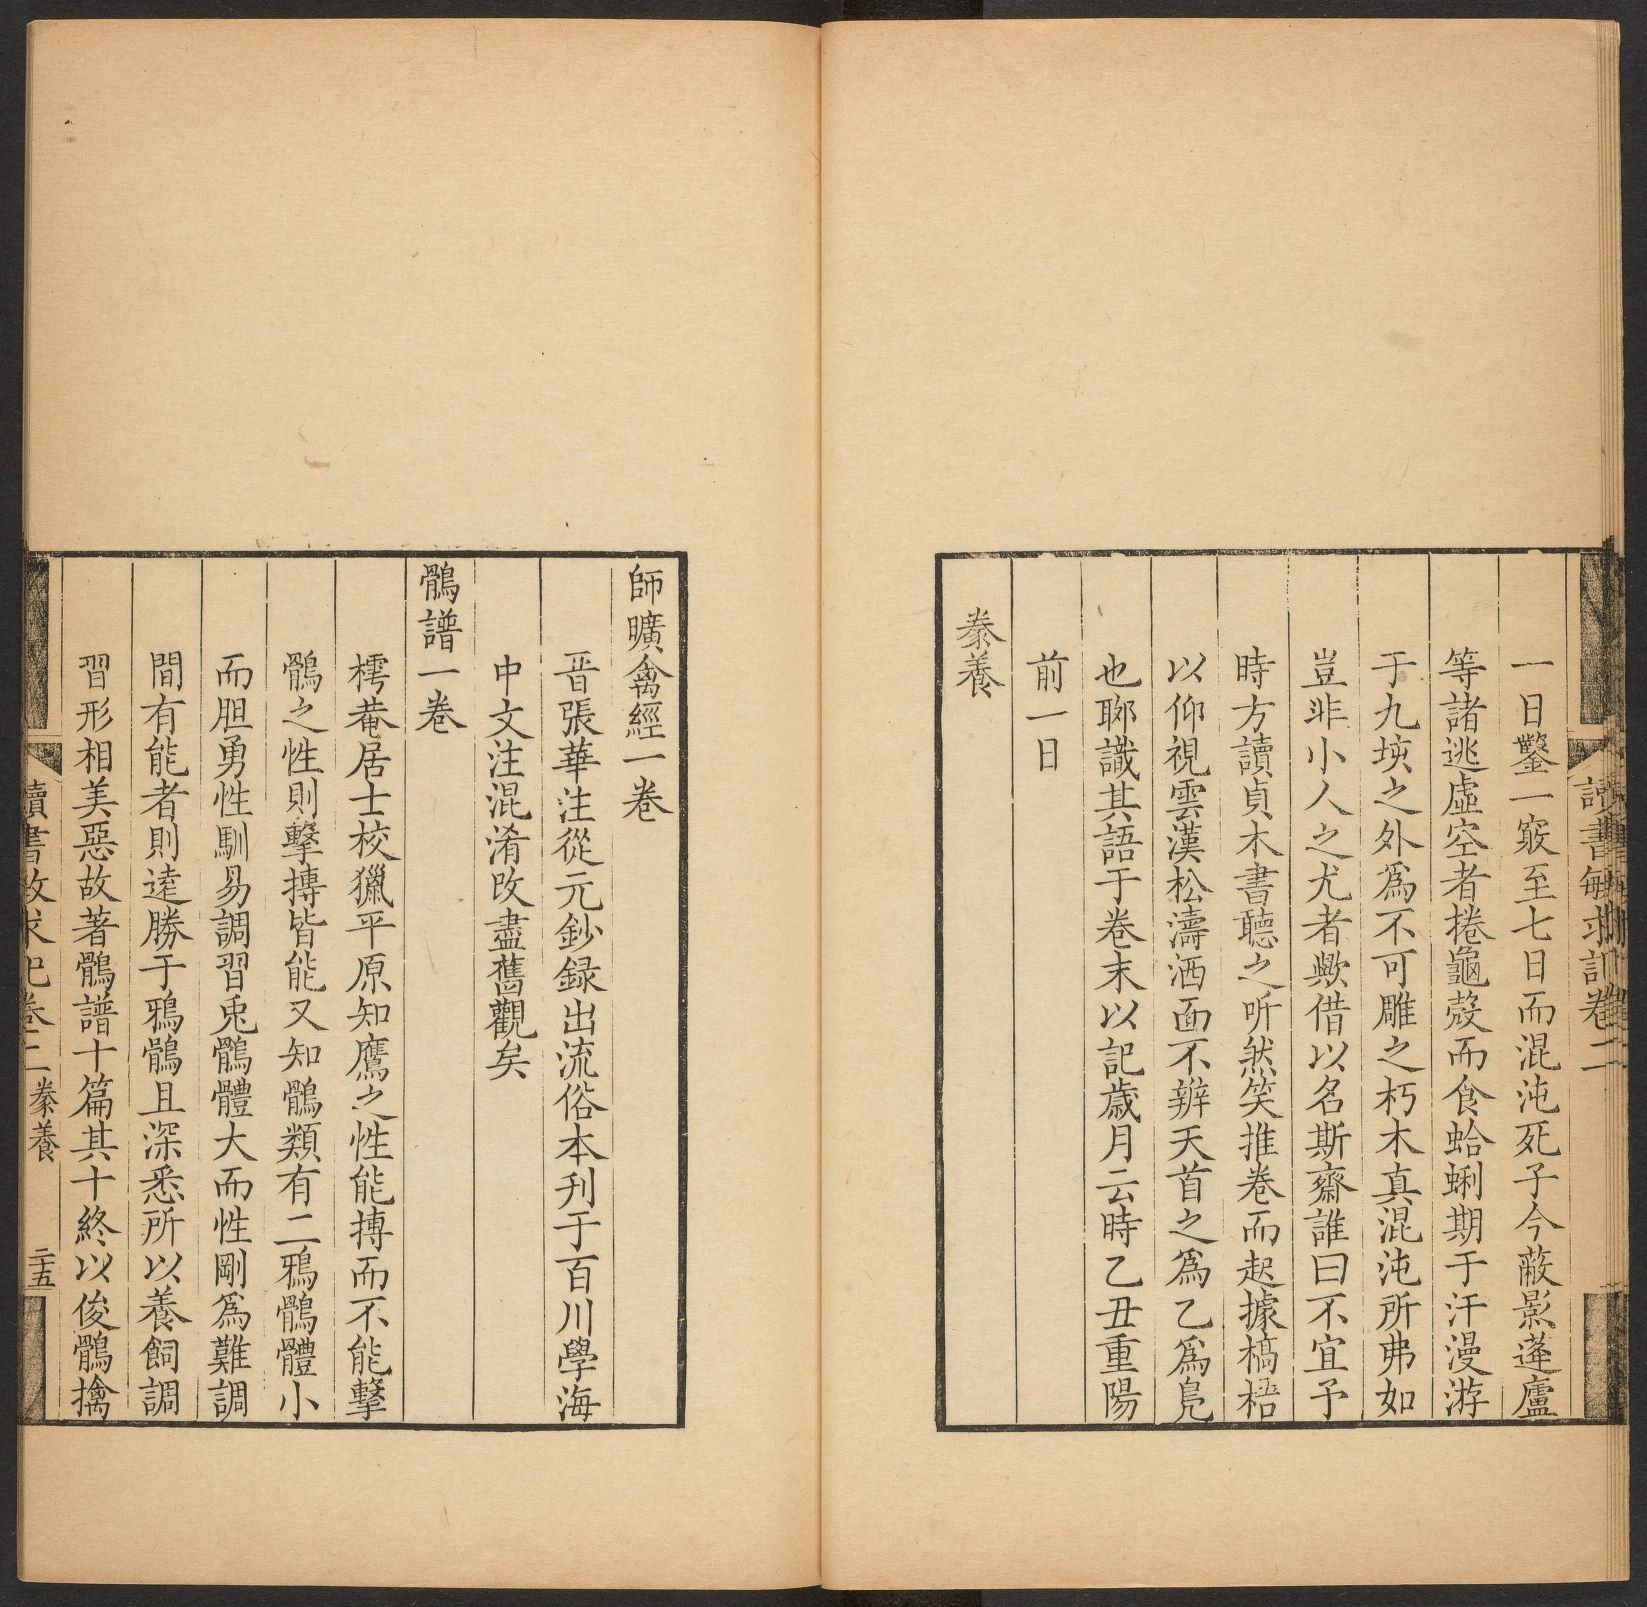 讀書敏求記卷二
一日鑿一竅至七日而混沌死子今蔽影蓬廬
等諸逃虛空者捲龜殼而食蛤蜊期于汗漫游
于九垓之外爲不可雕之朽木真混沌所弗如
豈非小人之尤者歟借以名斯齋誰曰不宜予
時方讀貞木書聽之听然笑推卷而起據槁梧
以仰視雲漢松濤洒面不辨天首之爲乙爲鳧
也聊識其語于卷末以記歲月云時乙丑重陽
前一日
豢養
師曠禽經一卷
晋張華注從元鈔録出流俗本刊于百川學海
中文注混淆改盡舊觀矣
鶻譜一卷
樗菴居士校獵平原知鷹之性能搏而不能擊
鶻之性則擊摶皆能又知鶻類有二鴉鶻體小
而胆勇性馴易調習兎鶻體大而性剛爲難調
間有能者則逺勝于鴉鶻且深悉所以養飼調
習形相美惡故著鶻譜十篇其十終以俊鶻擒
讀書敏求記卷二 豢養 二十五